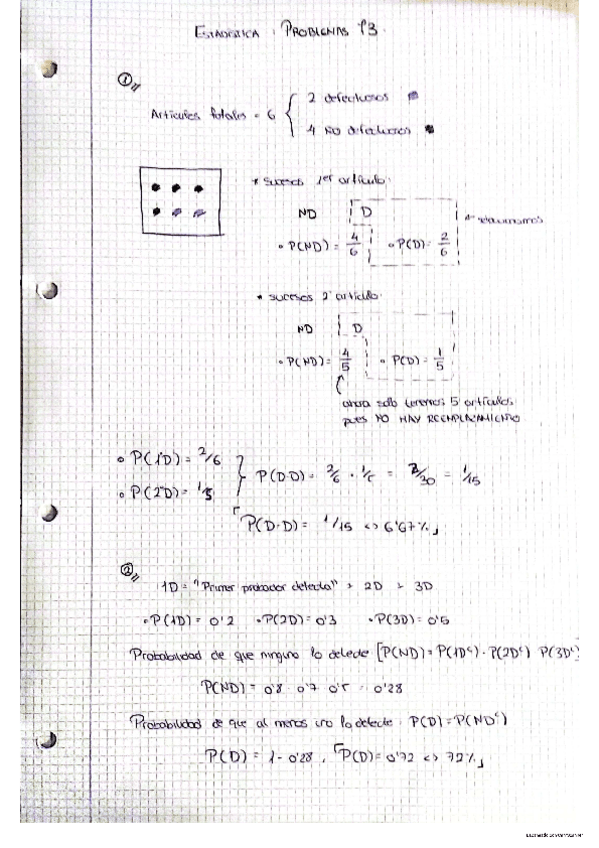 ESTADÍSTICA : PROBLEMAS T3.
①
Artículos totales = 6 { 2 defectuosos
4 no defectuosos
* sucesos 1er artículo:
ND D
• P(ND) = 4/6 • P(D) = 2/6
* sucesos 2º artículo:
ND D
• P(ND) = 4/5 • P(D) = 1/5
ahora solo tenemos 5 artículos
pues NO HAY REEMPLAZAMIENTO
• P(1ºD) = 2/6
• P(2ºD) = 1/5
P(D·D) = 2/6 · 1/5 = 2/30 = 1/15
P(D·D) = 1/15 <-> 6'67%
②
1D = "Primer probador detecta" , 2D , 3D
• P(1D) = 0'2 • P(2D) = 0'3 • P(3D) = 0'5
Probabilidad de que ninguno lo detecte [P(ND) = P(1Dᶜ) · P(2Dᶜ) P(3Dᶜ)]
P(ND) = 0'8 · 0'7 · 0'5 = 0'28
Probabilidad de que al menos uno lo detecte : P(D) = P(NDᶜ)
P(D) = 1 - 0'28 , P(D) = 0'72 <-> 72%